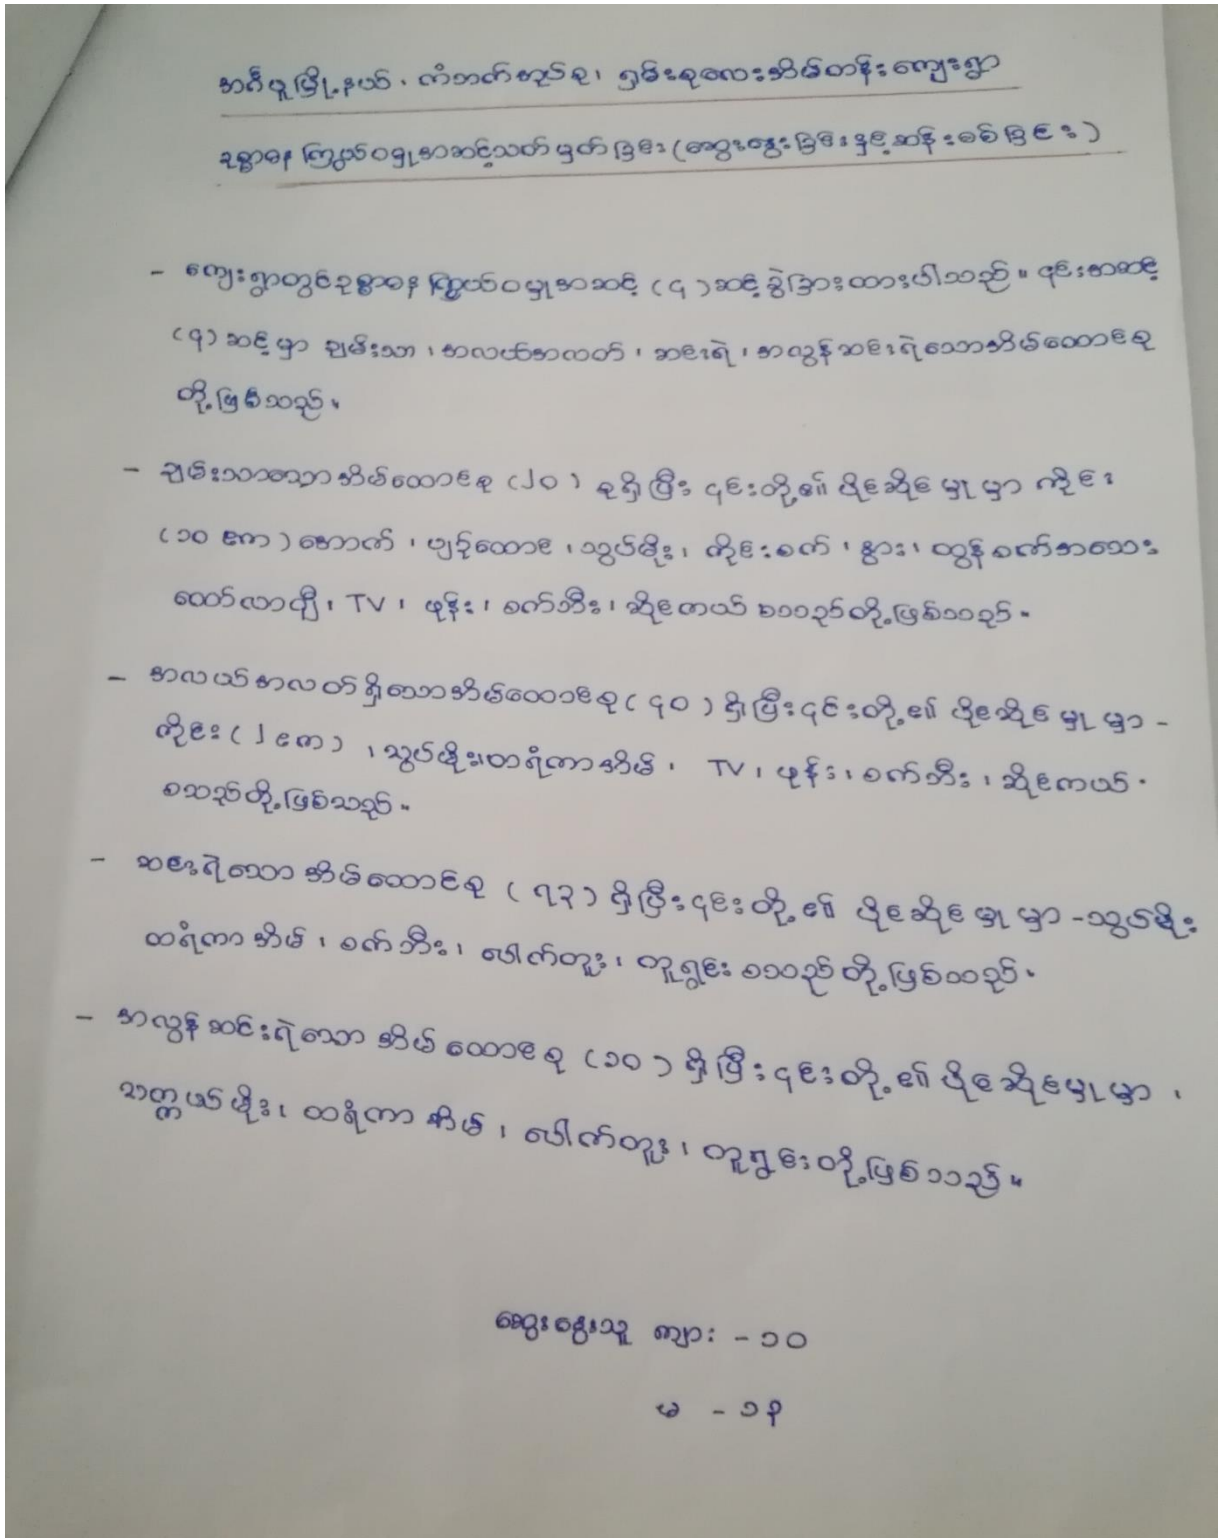 အင်္ဂပူမြို့နယ်၊ ကံဘက်အုပ်စု၊ ရှမ်းစုလေးအိမ်တန်းကျေးရွာ
ဥစ္စာဓန ကြွယ်ဝမှုအဆင့်သတ်မှတ်ခြင်း (ဆွေးနွေးခြင်းနှင့်ဆန်းစစ်ခြင်း)
- ကျေးရွာတွင်ဥစ္စာဓန ကြွယ်ဝမှုအဆင့် (၄) ဆင့်ခွဲခြားထားပါသည်။ ၎င်းအဆင့်
(၄) ဆင့်မှာ ချမ်းသာ၊ အလယ်အလတ်၊ ဆင်းရဲ၊ အလွန်ဆင်းရဲသောအိမ်ထောင်စု
တို့ဖြစ်သည်။
- ချမ်းသာသောအိမ်ထောင်စု (၂၀) စုရှိပြီး ၎င်းတို့၏ ပိုင်ဆိုင်မှုမှာ ကိုင်း
(၁၀ ဧက) အောက်၊ ပျဉ်ထောင်၊ သွပ်မိုး၊ ကိုင်းစက်၊ နွား၊ ထွန်စက်အသေး
ထော်လာဂျီ၊ TV၊ ဖုန်း၊ စက်ဘီး၊ ဆိုင်ကယ် စသည်တို့ဖြစ်သည်။
- အလယ်အလတ်ရှိသောအိမ်ထောင်စု (၄၀) ရှိပြီး၎င်းတို့၏ ပိုင်ဆိုင်မှုမှာ -
ကိုင်း (၂ ဧက)၊ သွပ်မိုးထရံကာအိမ်၊ TV၊ ဖုန်း၊ စက်ဘီး၊ ဆိုင်ကယ်၊
စသည်တို့ဖြစ်သည်။
- ဆင်းရဲသော အိမ်ထောင်စု (၇၃) ရှိပြီး၎င်းတို့၏ ပိုင်ဆိုင်မှုမှာ - သွပ်မိုး
ထရံကာအိမ်၊ စက်ဘီး၊ ပေါက်တူး၊ တူရွင်း စသည်တို့ဖြစ်သည်။
- အလွန်ဆင်းရဲသော အိမ်ထောင်စု (၁၀) ရှိပြီး၎င်းတို့၏ ပိုင်ဆိုင်မှုမှာ၊
သက္ကယ်မိုး၊ ထရံကာအိမ်၊ ပေါက်တူး၊ တူရွင်းတို့ဖြစ်သည်။
ဆွေးနွေးသူ ကျား - ၁၀
မ - ၁၃